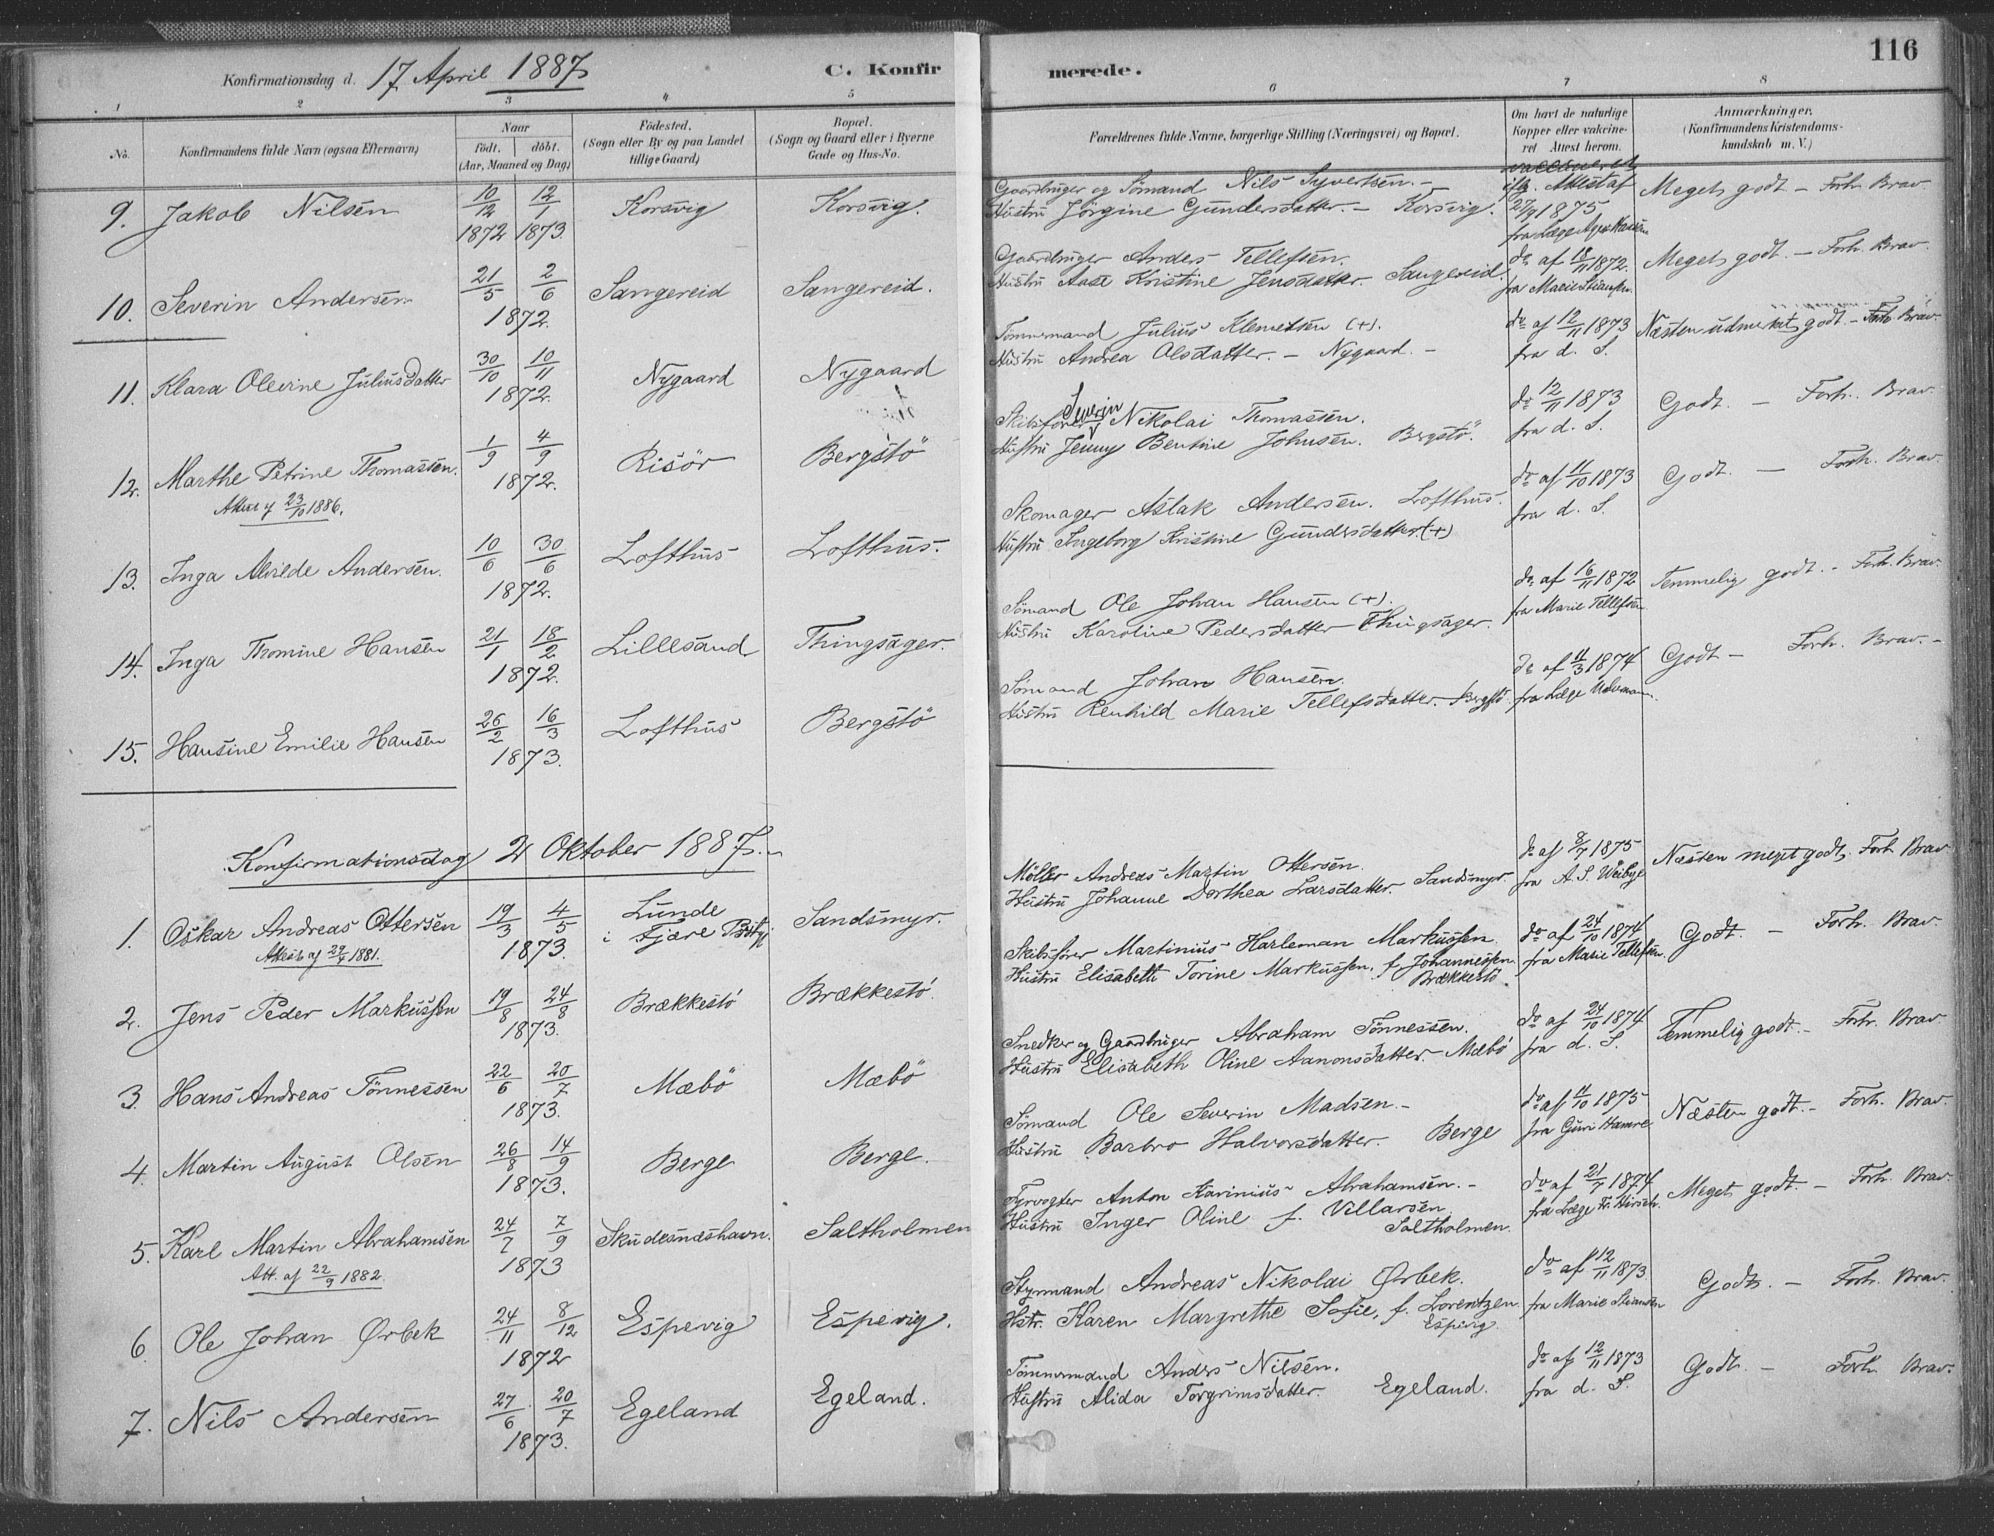 116
Konfirmationsdag d. 17 April 1887
C. Konfirmerede.
1 2 3 4 5 6 7 8
No.
Konfirmandens fulde Navn (ogsaa Efternavn)
Naar
födt. döbt.
(Aar, Maaned og Dag)
Födested.
(Sogn eller By og paa Landet
tillige Gaard)
Bopæl.
(Sogn og Gaard eller i Byerne
Gade og Hus-No.
Forældrenes fulde Navne, borgerlige Stilling (Næringsvei) og Bopæl.
Om havt de naturlige
Kopper eller vakcineret
Attest herom.
Anmærkninger.
(Konfirmandens Kristendomskundskab
m. V.)
9. Jakob Nilsen 10/12 1872 12/1 1873. Korsvig Korsvig.
Gaardbruger og Sömand Nils Syvertsen. -
Hustru Jörgine Gundersdatter. - Korsvig.
Attest af
27/9 1875
fra Læge
Meget godt - Forh. Brav.
10. Severin Andersen 21/5 2/6 1872. Sangereid Sangereid.
Gaardbruger Anders Tellefsen.
Hustru Aase Kristine Jensdatter. Sangereid.
do af 18/11 1872.
fra Marie Stiansen.
Meget godt. - Forh. Brav.
11. Klara Olevine Juliusdatter 30/10 10/11 1872. Nygaard Nygaard
Tömmermand Julius Klemetsen (+).
Hustru Andrea Olsdatter. - Nygaard. -
do af 12/11 1873
fra d. S.
Næsten udmerket godt. - Forh. Brav.
12. Marthe Petrine Thomassen. 1/9 4/9 1872. Risör Bergstö
Attest af 23/10 1886.
Skibsförer Severin Nikolai Thomassen.
Hustru Jenny Bentine Johnsen. Bergstö.
do 12/11 1873
fra d. S.
Godt. - Forh. Brav.
13. Inga Alvilde Andersen. 10/6 30/6 1872. Lofthus Lofthus.
Skomager Aslak Andersen. Lofthus.
Hustru Ingeborg Kristine Gundersdatter. (+)
do af 11/10 1873
fra d. S.
Godt. - Forh. Brav.
14. Inga Thomine Hansen 21/1 18/2 1872. Lillesand Thingsager.
Sömand Ole Johan Hansen (+).
Hustru Karoline Pedersdatter - Thingsager.
do af 16/11 1872
fra Marie Tellefsen
Temmelig godt. - Forh. Brav.
15. Hansine Emilie Hansen 26/2 16/3 1873. Lofthus Bergstö
Sömand Johan Hansen.
Hustru Renhild Marie Tellefsdatter. Bergstö
do af 11/3 1874
fra Læge
Godt - Forh. Brav. -
Konfirmationsdag 2 Oktober 1887.
1. Oskar Andreas Ottersen 19/3 4/5 1873. Lunde i Fjære Pstgj. Sandsmyr.
Attest af 29/7 1881.
Möller Andreas Martin Ottersen.
Hustru Johanne Dorthea Larsdatter. Sandsmyr.
do af 8/7 1875
fra A. S. Weibye
Næsten meget godt. Forh. Brav
2. Jens Peder Markussen 19/8 24/8 1873. Brækkestö Brækkestö.
Skibsförer Martinius Harleman Markussen.
Hustru Elisabeth Torine Markussen, f. Johannessen
Brækkestö.
do af 24/10 1874
fra Marie Tellefsen.
Godt. - Forh. Brav.
3. Hans Andreas Tönnessen 22/6 20/7 1873. Mæbö Mæbö
Snedker og Gaardbruger Abraham Tönnessen.
Hustru Elisabeth Oline Aanonsdatter. - Mæbö
do af 24/10 1874
fra d. S.
Temmelig godt. - Forh. Brav.
4. Martin August Olsen 26/8 14/9 1873. Berge Berge.
Sömand Ole Severin Madsen. -
Hustru Barbro Halvorsdatter. Berge
do af 11/10 1875
fra Guri Hamre
Næsten godt. - Forh. Brav.
5. Karl Martin Abrahamsen 24/7 7/9 1873 Skudesnæshavn. Saltholmen
Att. af 22/9 1882.
Fyrvogter Anton Karinius Abrahamsen. -
Hustru Inger Oline f. Villarsen.
Saltholmen.
do af 21/7 1874
fra Læge Fr. Hirsch.
Meget godt. - Forh. Brav.
6. Ole Johan Ørbek 24/11 8/12 1872 Espevig Espevig.
Styrmand Andreas Nikolai Ørbek.
Hstr. Karen Margrethe Sofie, f. Lorentzen
Espevig.
do af 12/11 1873
fra Marie Stiansen
Godt. - Forh. Brav.
7. Nils Andersen 27/6 20/7 1873. Egeland Egeland.
Tömmermand Anders Nilsen.
Hustru Alida Torgrimsdatter. Egeland.
do af 12/11 1873
fra d. S.
Godt. - Forh. Brav.